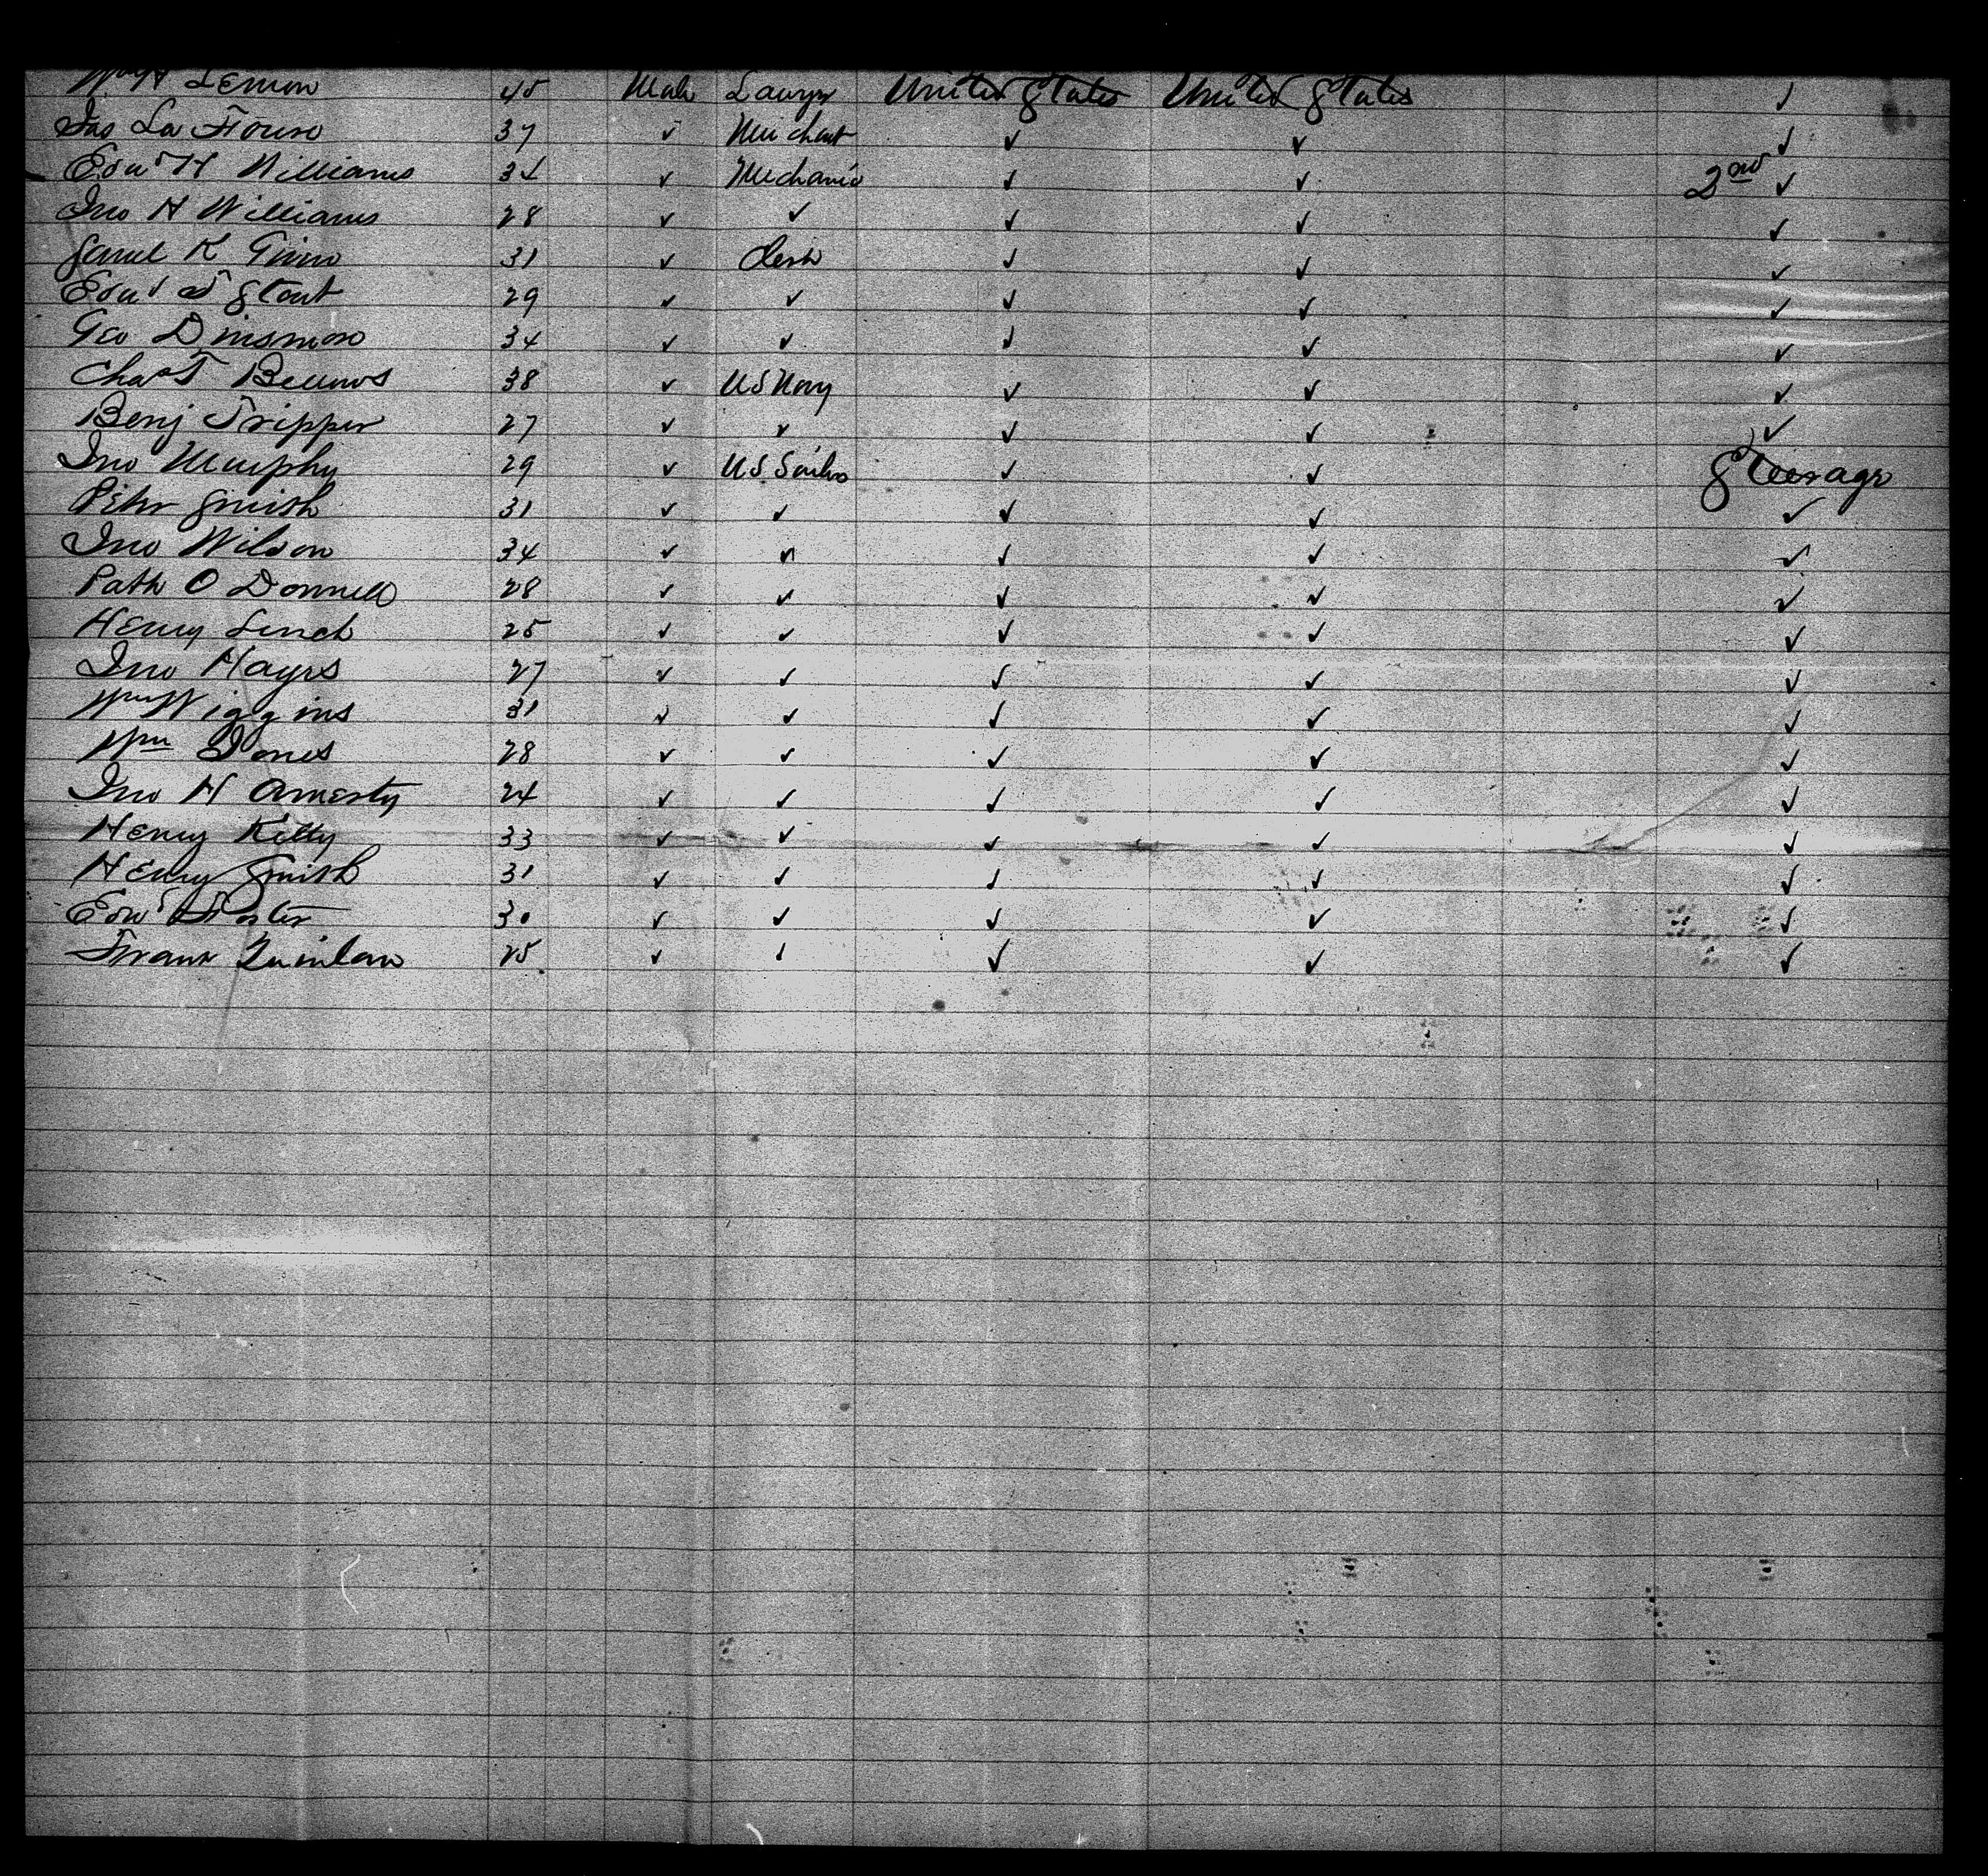 Lemon 45 Male Lawyer United States United States ✓
Jas La Fourn 37 ✓ Merchant ✓ ✓ ✓
Edwd H Williams 34 ✓ Mechanic ✓ ✓ 2nd ✓
Jno H Williams 28 ✓ ✓ ✓ ✓ ✓
Saml K 31 ✓ Clerk ✓ ✓ ✓
Edwd S Stout 29 ✓ ✓ ✓ ✓ ✓
Geo Dinsmore 34 ✓ ✓ ✓ ✓ ✓
Chas T 38 ✓ US Navy ✓ ✓ ✓
Benj Tripper 27 ✓ ✓ ✓ ✓ ✓
Jno Murphy 29 ✓ US Sailor ✓ ✓ Steerage
Peter Smith 31 ✓ ✓ ✓ ✓ ✓
Jno Wilson 34 ✓ ✓ ✓ ✓ ✓
Patk O Donnell 28 ✓ ✓ ✓ ✓ ✓
Henry Linch 25 ✓ ✓ ✓ ✓ ✓
Jno Hayes 27 ✓ ✓ ✓ ✓ ✓
Wm Wiggins 31 ✓ ✓ ✓ ✓ ✓
Wm Jones 28 ✓ ✓ ✓ ✓ ✓
Jno H Amesty 24 ✓ ✓ ✓ ✓ ✓
Henry Kelly 33 ✓ ✓ ✓ ✓ ✓
Henry Smith 31 ✓ ✓ ✓ ✓ ✓
Edwd Foster 30 ✓ ✓ ✓ ✓ ✓
Frank Quinlan 25 ✓ ✓ ✓ ✓ ✓